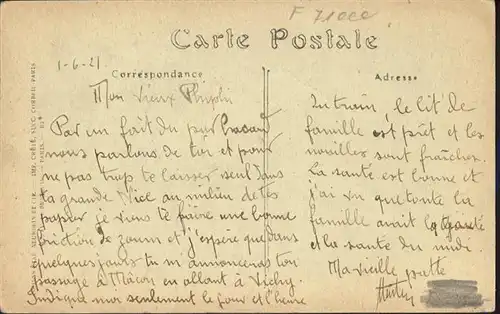 F 71000
Carte Postale
1-6-21
Correspondance
Adresse
Mon Vieux
Par un fait du pur hasard
nous parlons de toi et pour
ne pas trop te laisser seul dans
ta grande Nice au milieu de tes
papier je viens te faire une bonne
friction de zoum et j'espère que dans
quelques jours tu m'annonceras ton
passage à Mâcon en allant à Vichy
Indique moi seulement le jour et l'heure
du train, le lit de
famille est prêt et les
nouilles sont fraîches.
La santé est bonne et
j'ai vu que toute la
famille avait la
et la santé du midi
Ma vieille patte